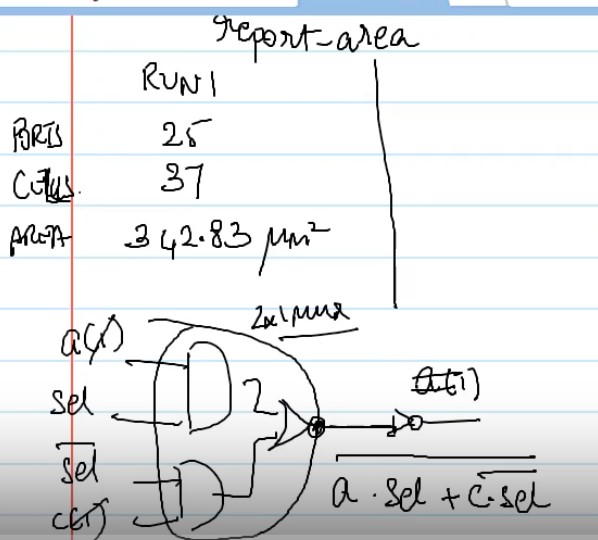 report_area
RUN1
PORTS 25
CELLS 37
AREA 342.83 μm²
2x1 mux
a(1)
sel
a(1)
s̅e̅l̅
c(1)
a · sel + c · s̅e̅l̅